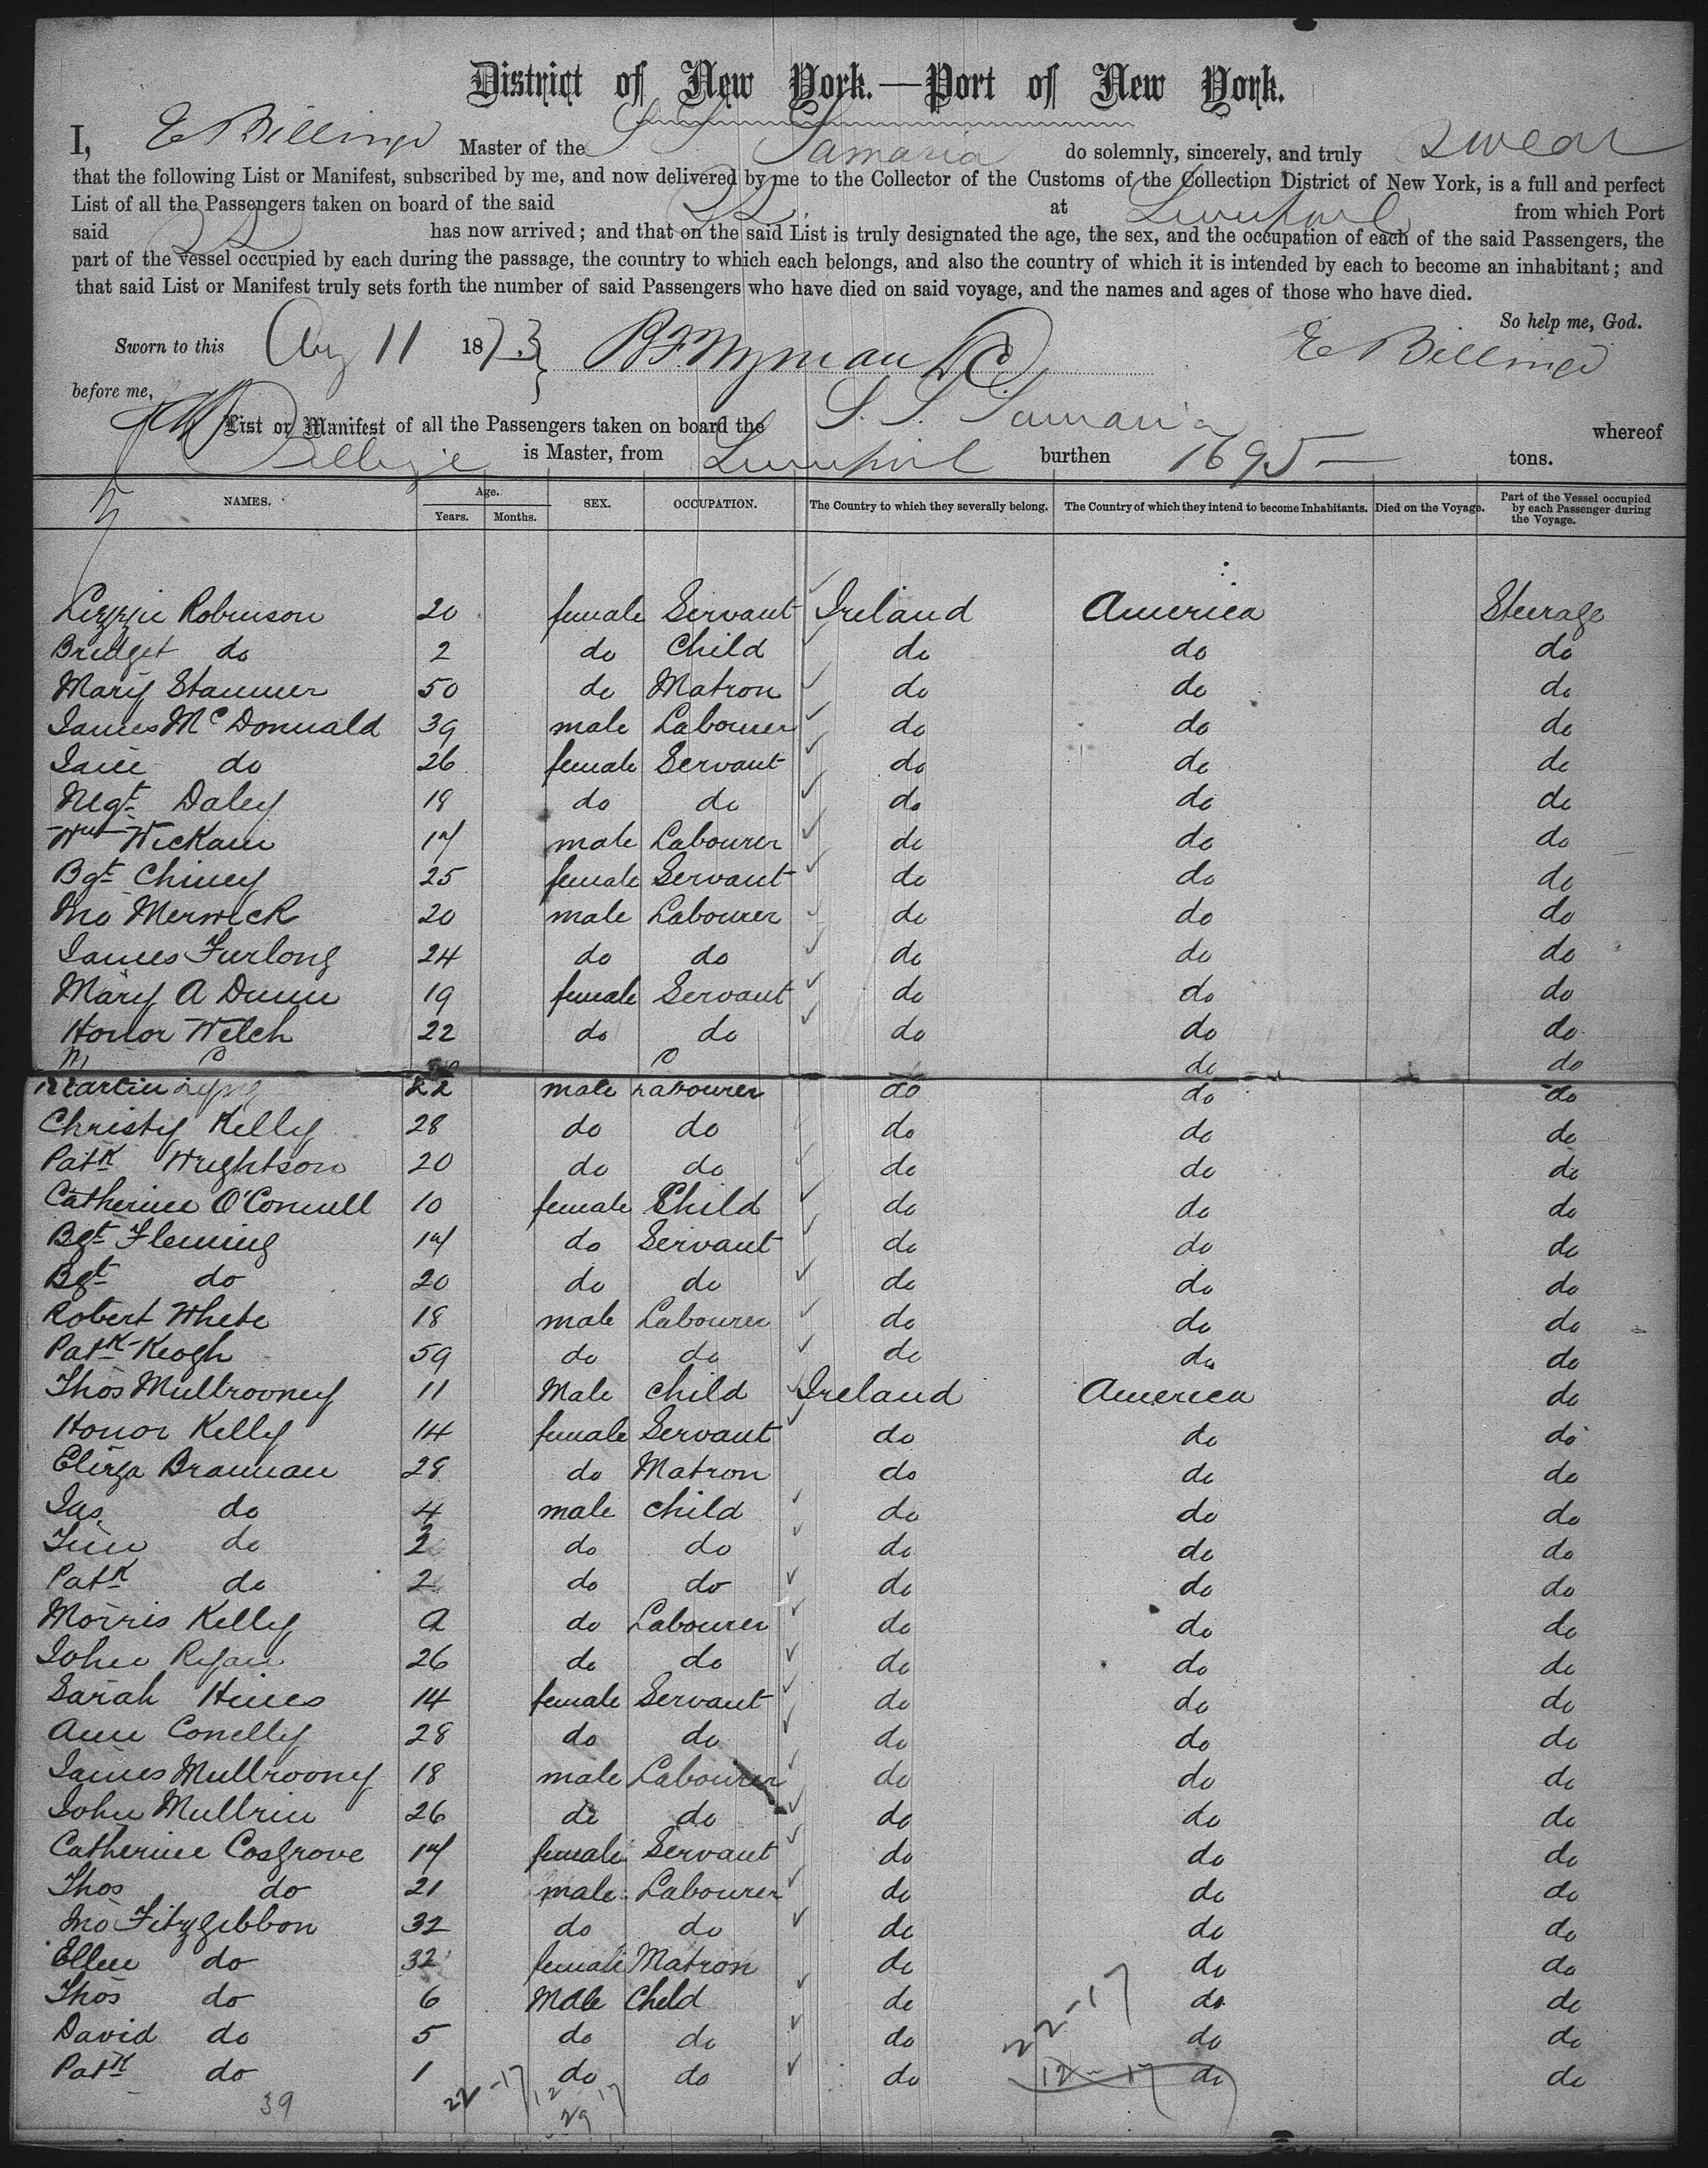 District of New York.—Port of New York.
I, E Billinge Master of the S S Samaria do solemnly, sincerely, and truly swear
that the following List or Manifest, subscribed by me, and now delivered by me to the Collector of the Customs of the Collection District of New York, is a full and perfect
List of all the Passengers taken on board of the said SS at Liverpool from which Port
said SS has now arrived; and that on the said List is truly designated the age, the sex, and the occupation of each of the said Passengers, the
part of the vessel occupied by each during the passage, the country to which each belongs, and also the country of which it is intended by each to become an inhabitant; and
that said List or Manifest truly sets forth the number of said Passengers who have died on said voyage, and the names and ages of those who have died.
So help me, God.
Sworn to this Aug 11 1873 B F Wyman DC E Billinge
before me,
List or Manifest of all the Passengers taken on board the S. S. Samaria whereof
Billinge is Master, from Liverpool burthen 1695 — tons.
NAMES. Age. Years. Months. SEX. OCCUPATION. The Country to which they severally belong. The Country of which they intend to become Inhabitants. Died on the Voyage. Part of the Vessel occupied by each Passenger during the Voyage.
Lizzie Robinson 20 female Servant Ireland America Steerage
Bridget do 2 do Child do do do
Mary Stanner 50 do Matron do do do
James McDonnald 39 male Labourer do do do
Jane do 26 female Servant do do do
Mgt Daley 18 do do do do do
Wm Wickam 17 male Labourer do do do
Bgt Chiney 25 female Servant do do do
Jno Merwick 20 male Labourer do do do
James Furlong 24 do do do do do
Mary A Dunn 19 female Servant do do do
Honor Welch 22 do do do do do
do do
Martin 22 male Labourer do do do
Christy Kelly 28 do do do do do
Patk Wrightson 20 do do do do do
Catherine O'Connell 10 female Child do do do
Bgt Fleming 17 do Servant do do do
Bgt do 20 do do do do do
Robert White 18 male Labourer do do do
Patk Keogh 59 do do do do do
Thos Mullrooney 11 Male child Ireland America do
Honor Kelly 14 female Servant do do do
Eliza Brannan 28 do Matron do do do
Jas. do 4 male child do do do
Tim do 2 do do do do do
Patk do 2 do do do do do
Morris Kelly a do Labourer do do do
John Ryan 26 do do do do do
Sarah Hines 14 female Servant do do do
Ann Conelly 28 do do do do do
James Mullroony 18 male Labourer do do do
John Mullrin 26 do do do do do
Catherine Cosgrove 17 female Servant do do do
Thos do 21 male Labourer do do do
Jno Fitzgibbon 32 do do do do do
Ellen do 32 female Matron do do do
Thos do 6 Male Child do do do
David do 5 do do do do do
Patk do 1 do do do do do
22-17
12-17
39 22-17 12 17
29